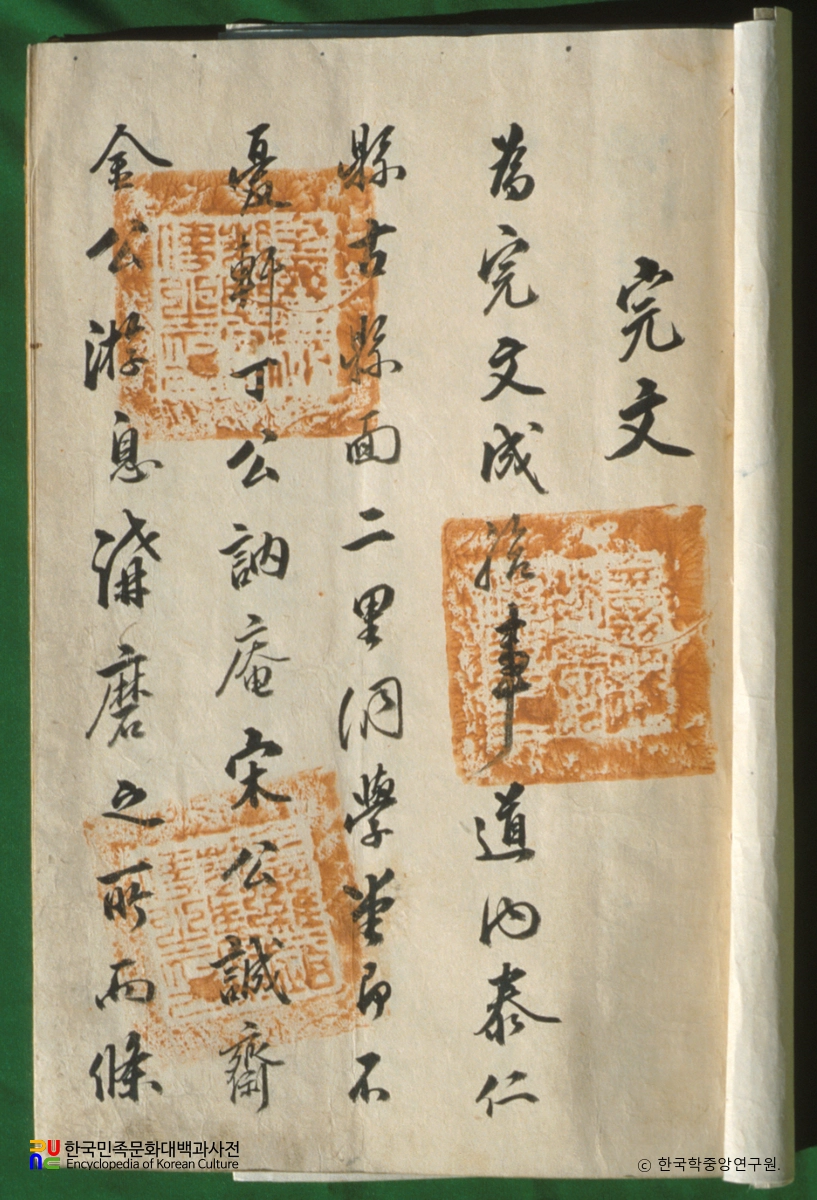 完文
為完文成給事道內泰仁
縣古縣面二里洞學堂即不
憂軒丁公訥庵宋公誠齋
金公游息講磨之所而條
한국민족문화대백과사전
Encyclopedia of Korean Culture
© 한국학중앙연구원.